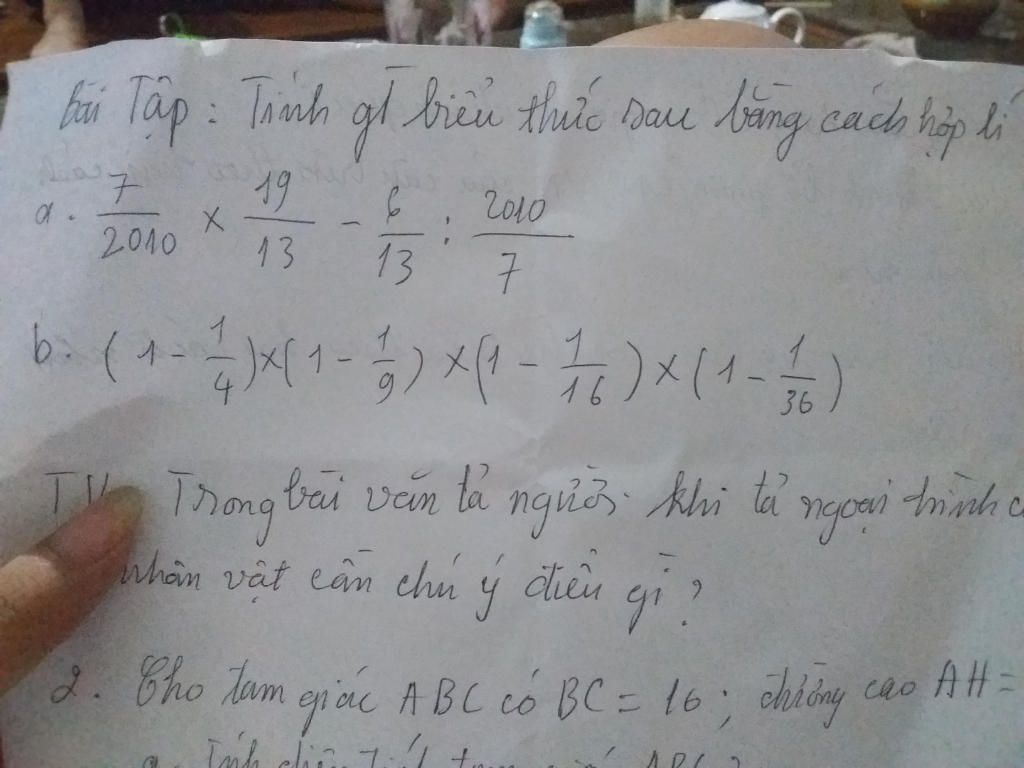 Bài Tập : Tính gT biểu thức sau bằng cách hợp lí
a. 7/2010 × 19/13 - 6/13 : 2010/7
b. (1 - 1/4)×(1 - 1/9) ×(1 - 1/16) × (1 - 1/36)
Trong bài văn tả người. khi tả ngoại hình
nhân vật cần chú ý điều gì ?
2. Cho tam giác ABC có BC = 16 ; đường cao AH =
a. Tính diện tích tam giác ABC ?